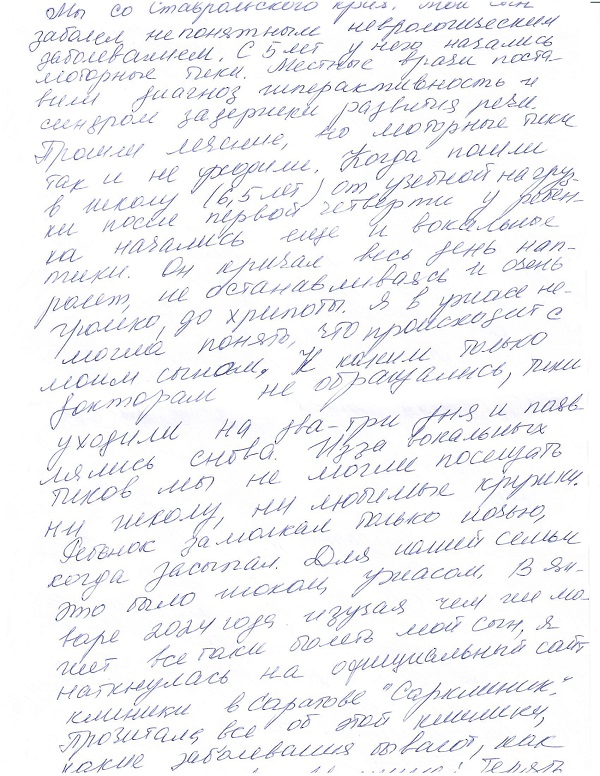 Мы со Ставропольского края. Мой сын
заболел непонятным неврологическим
заболеванием. С 5 лет у него начались
моторные тики. Местные врачи поста-
вили диагноз гиперактивность и
синдром задержки развития речи
Прошли лечение, но моторные тики
так и не уходили. Когда пошли
в школу (6,5 лет) от учебной нагруз-
ки после первой четверти у ребён-
ка начались еще и вокальные
тики. Он кричал весь день нап-
ролет, не останавливаясь и очень
громко, до хрипоты. Я в ужасе не
могла понять, что происходит с
моим сыном. К каким только
докторам не обращались, тики
уходили на два-три дня и появ-
лялись снова. Из за вокальных
тиков мы не могли посещать
ни школу, ни любимые кружки.
Ребенок замолкал только ночью,
когда засыпал. Для нашей семьи
это было шоком, ужасом. В ян-
варе 2024 года изучая чем же мо-
жет все таки болеть мой сын, я
наткнулась на официальный сайт
клиники в Саратове "Сарклиник".
Прочитала все об этой клинике,
какие заболевания бывают, как
Терять